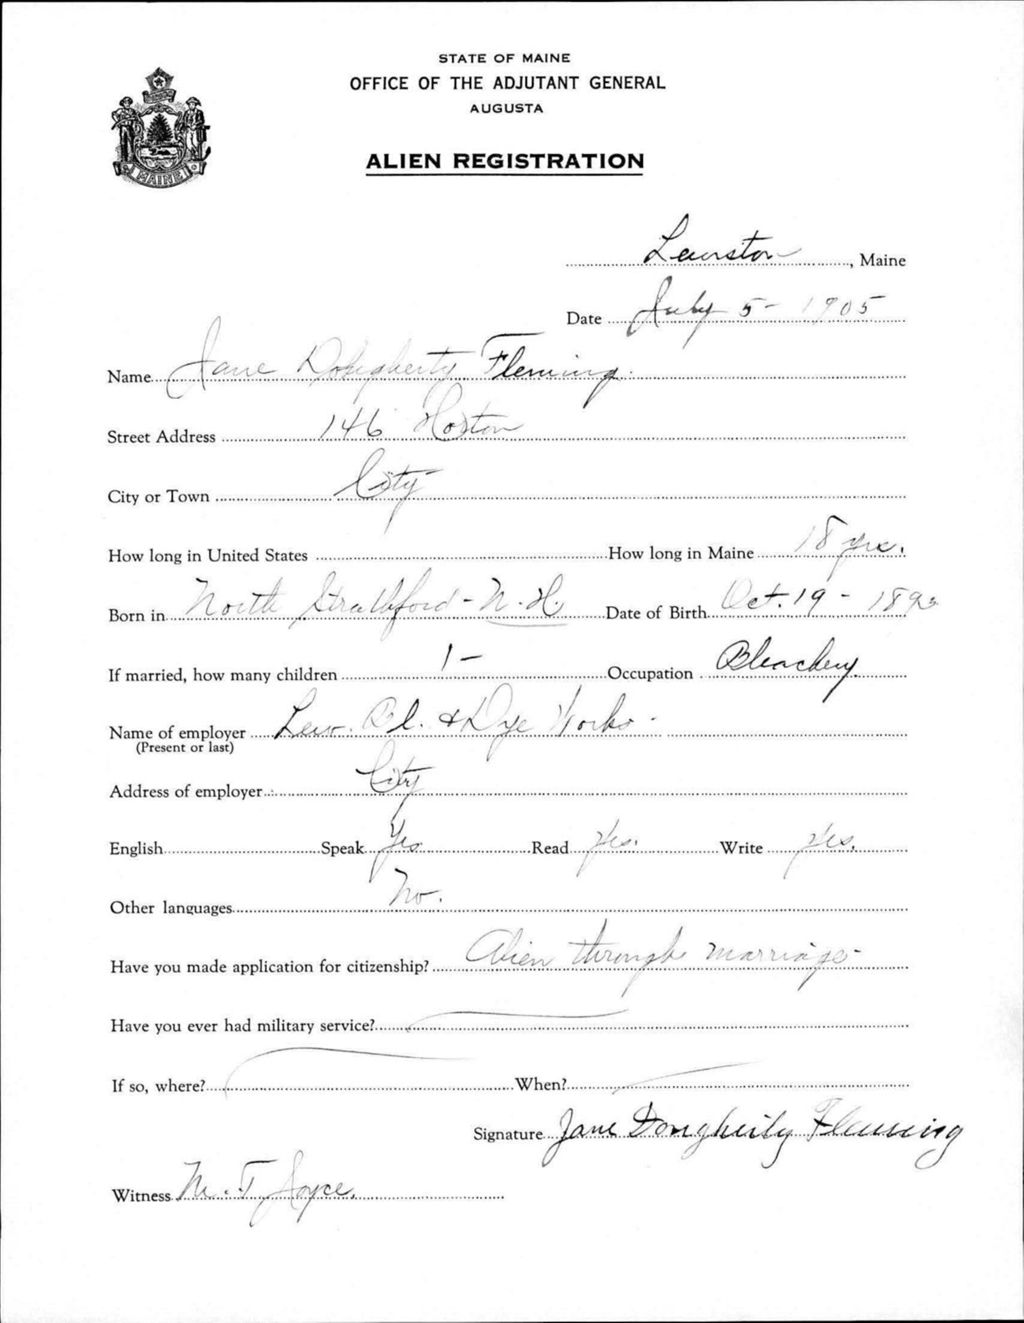 STATE OF MAINE
OFFICE OF THE ADJUTANT GENERAL
AUGUSTA
ALIEN REGISTRATION
MAINE
Lewiston, Maine
Date July 5 - 1905
Name Jane Dougherty Fleming
Street Address 146 Horton
City or Town City
How long in United States How long in Maine 18 yrs.
Born in North Stratford - N. H. Date of Birth Oct. 19 -
If married, how many children 1 - Occupation Bleachery
Name of employer Lew. Bl. & Dye Works -
(Present or last)
Address of employer City
English Speak Yes Read Yes. Write Yes.
Other languages No.
Have you made application for citizenship? Alien through marriage -
Have you ever had military service?
If so, where? When?
Signature Jane Dougherty Fleming
Witness M. T. Joyce.